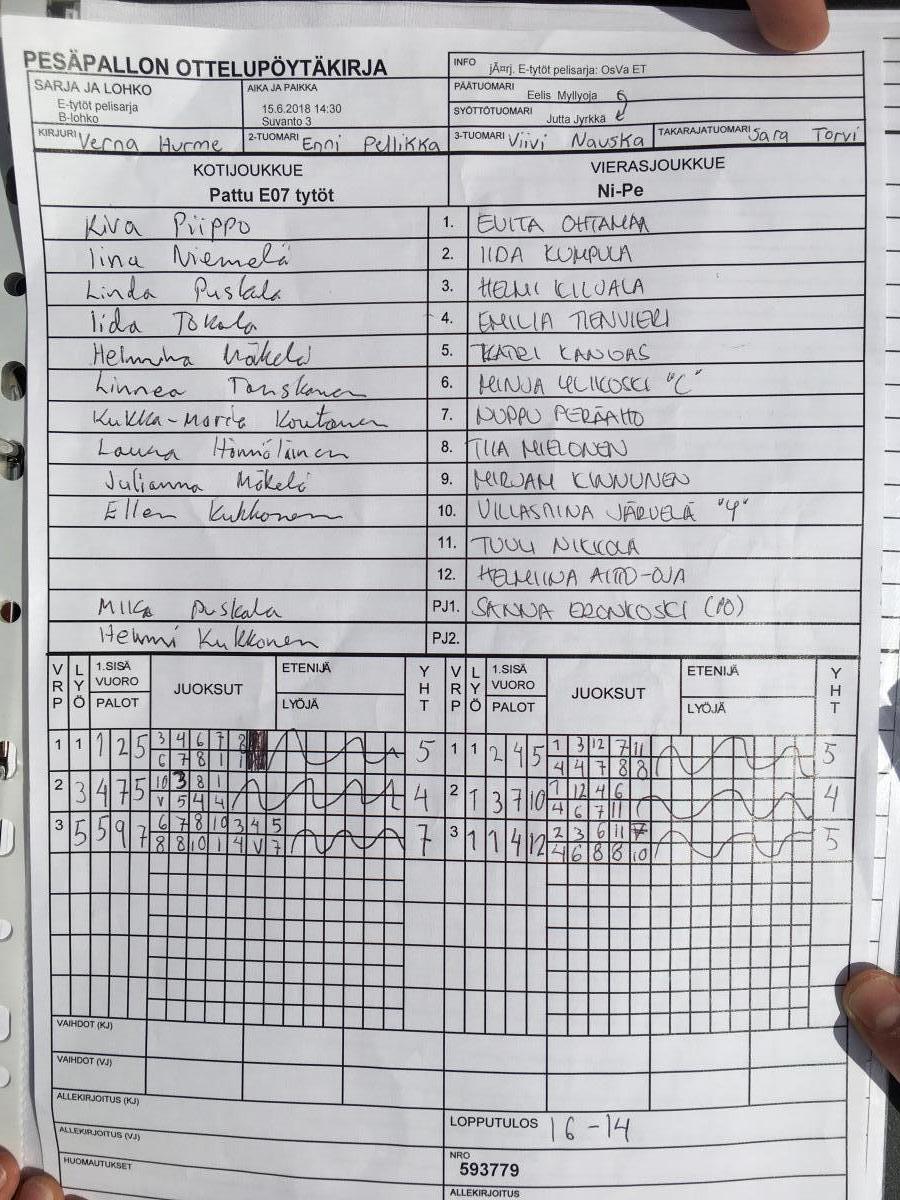 PESÄPALLON OTTELUPÖYTÄKIRJA
INFO jÃ¤rj. E-tytöt pelisarja: OsVa ET
SARJA JA LOHKO
E-tytöt pelisarja
B-lohko
AIKA JA PAIKKA
15.6.2018 14:30
Suvanto 3
PÄÄTUOMARI Eelis Myllyoja
SYÖTTÖTUOMARI Jutta Jyrkkä
KIRJURI Verna Hurme 2-TUOMARI Enni Pellikka 3-TUOMARI Viivi Nauska TAKARAJATUOMARI Sara Torvi
KOTIJOUKKUE VIERASJOUKKUE
Pattu E07 tytöt Ni-Pe
Kiva Piippo 1. EVITA OHTAMAA
Iina Niemelä 2. IIDA KUMPULA
Linda Puskala 3. HELMI KILJALA
Iida Tokola 4. EMILIA TIENVIERI
Helmiina Mäkelä 5. KATRI KANGAS
Linnea Tanskanen 6. MINJA YLIKOSKI "C"
Kukka-Maria Koutonen 7. NUPPU PERÄAHO
Laura Hännöläinen 8. TIIA MIELONEN
Julianna Mäkelä 9. MIRJAM KINNUNEN
Ellen Kukkonen 10. VILLASTIINA JÄRVELÄ "Y"
11. TUULI NIKKOLA
12. HELMIINA AITTO-OJA
Mika Puskala PJ1. SANNA ERONKOSKI (PO)
Helmi Kukkonen PJ2.
VRP LYÖ 1.SISÄ VUORO PALOT JUOKSUT ETENIJÄ LYÖJÄ YHT VRP LYÖ 1.SISÄ VUORO PALOT JUOKSUT ETENIJÄ LYÖJÄ YHT
1 1 1 2 5 3 4 6 7 8 5 1 1 2 4 5 1 3 12 7 11 5
6 7 8 1 1 4 4 7 8 8
2 3 4 7 5 10 3 8 1 4 2 1 3 7 10 1 12 4 6 4
V 5 4 4 4 6 7 11
3 5 5 9 7 6 7 8 10 3 4 5 7 3 1 1 4 12 2 3 6 11 7 5
8 8 10 1 4 V 7 4 6 8 8 10
VAIHDOT (KJ)
VAIHDOT (VJ)
ALLEKIRJOITUS (KJ)
LOPPUTULOS 16-14
ALLEKIRJOITUS (VJ)
HUOMAUTUKSET
NRO
593779
ALLEKIRJOITUS